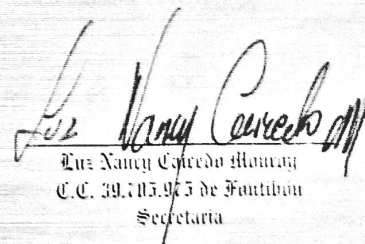 Luz Nancy Caicedo M
Luz Nancy Caicedo Monroy
C.C. 39.705.975 de Fontibón
Secretaria